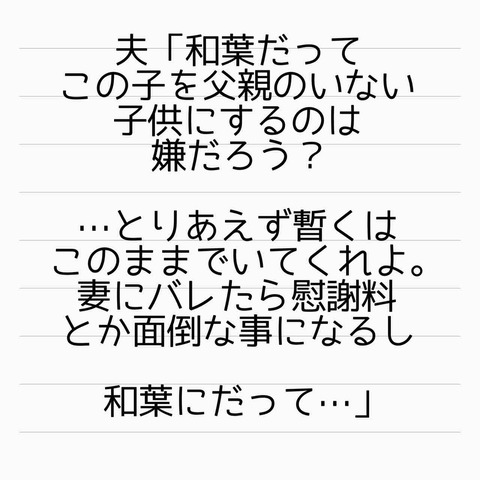 夫「和葉だって
この子を父親のいない
子供にするのは
嫌だろう？
…とりあえず暫くは
このままでいてくれよ。
妻にバレたら慰謝料
とか面倒な事になるし
和葉にだって…」